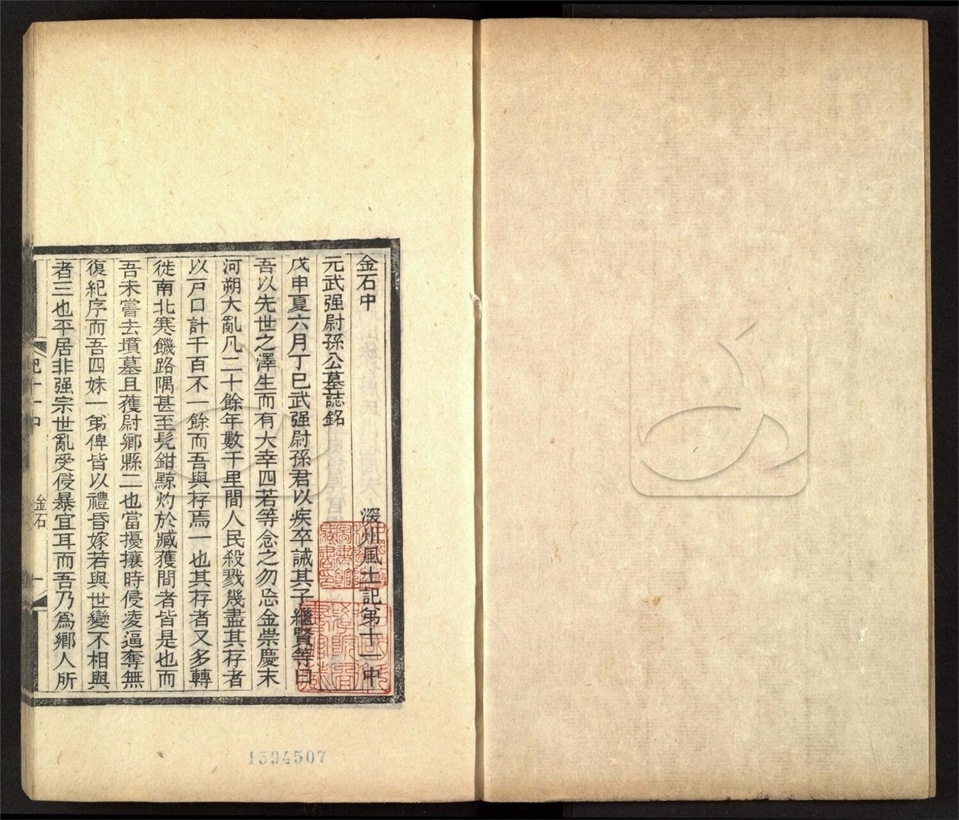 金石中　深州風土記第十一中
元武强尉孫公墓誌銘
戊申夏六月丁巳武强尉孫君以疾卒誡其子繼賢等曰
吾以先世之澤生而有大幸四若等念之勿忘金崇慶末
河朔大亂凡二十餘年數千里間人民殺戮幾盡其存者
以戸口計千百不一餘而吾與存焉一也其存者又多轉
徙南北寒饑路隅甚至髡鉗黥灼於臧獲間者皆是也而
吾未嘗去墳墓且獲尉鄉縣二也當擾攘時侵凌逼奪無
復紀序而吾四妹一弟俾皆以禮昏嫁若與世變不相與
者三也平居非强宗世亂受侵暴宜耳而吾乃爲鄉人所
記十一中　金石　一
1594507